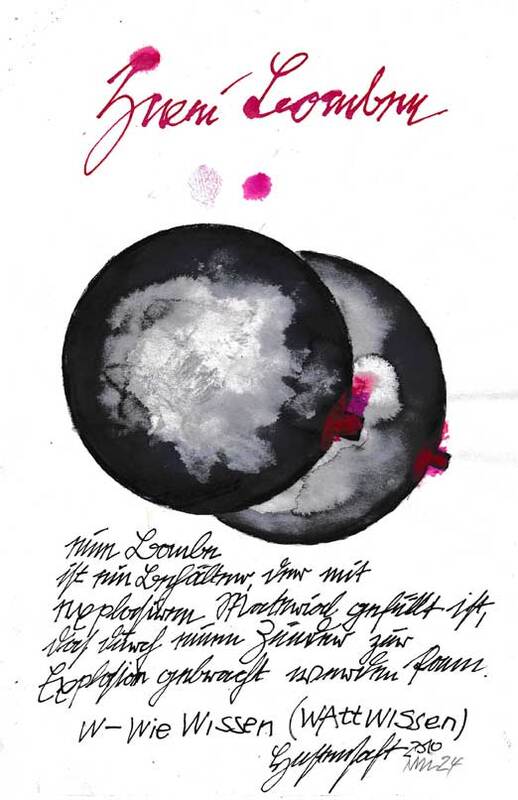 Zwei Bomben
eine Bombe
ist ein Behälter, der mit
explosivem Material gefüllt ist,
das durch einen Zünder zur
Explosion gebracht werden kann.
W-Wie Wissen (WAttWissen)
2010
24